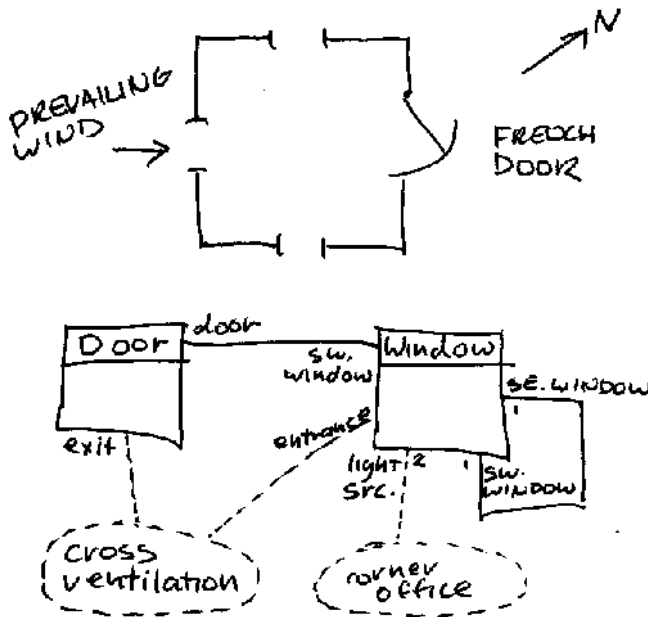 N
PREVAILING
WIND
FRENCH
DOOR
door
Door
Window
sw.
window
SE. WINDOW
1
exit
entranse
light
src.
2
1
SW.
WINDOW
cross
ventilation
corner
office